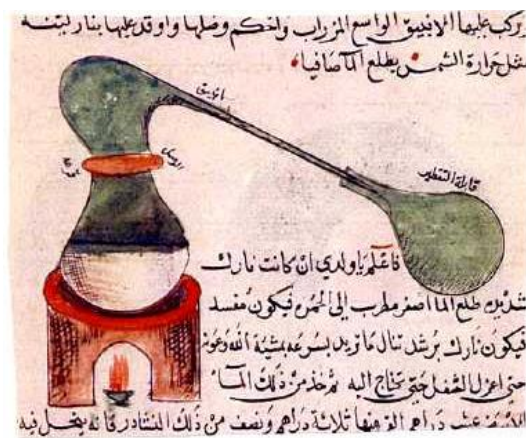 يركب عليها الانبيق الواسع المزراب واحكم وصلها واوقد عليها بنار لينه
مثل حرارة الشمس يطلع الما صافيا
انبيق
الوصل
قابلة التقطير
فاعلم يا ولدي ان كانت نارك
طلع الما اصفر الى الحمره فيكون مفسد
فيكون نارك برشد تنال ما تريد بسرعه بمشية الله وعونه
حتى اعزل الثفل حتى تحتاج اليه ثم خذ من ذلك الما
دراهم ثلاثة دراهم ونصف من ذلك النشادر فانه ينحل فيه